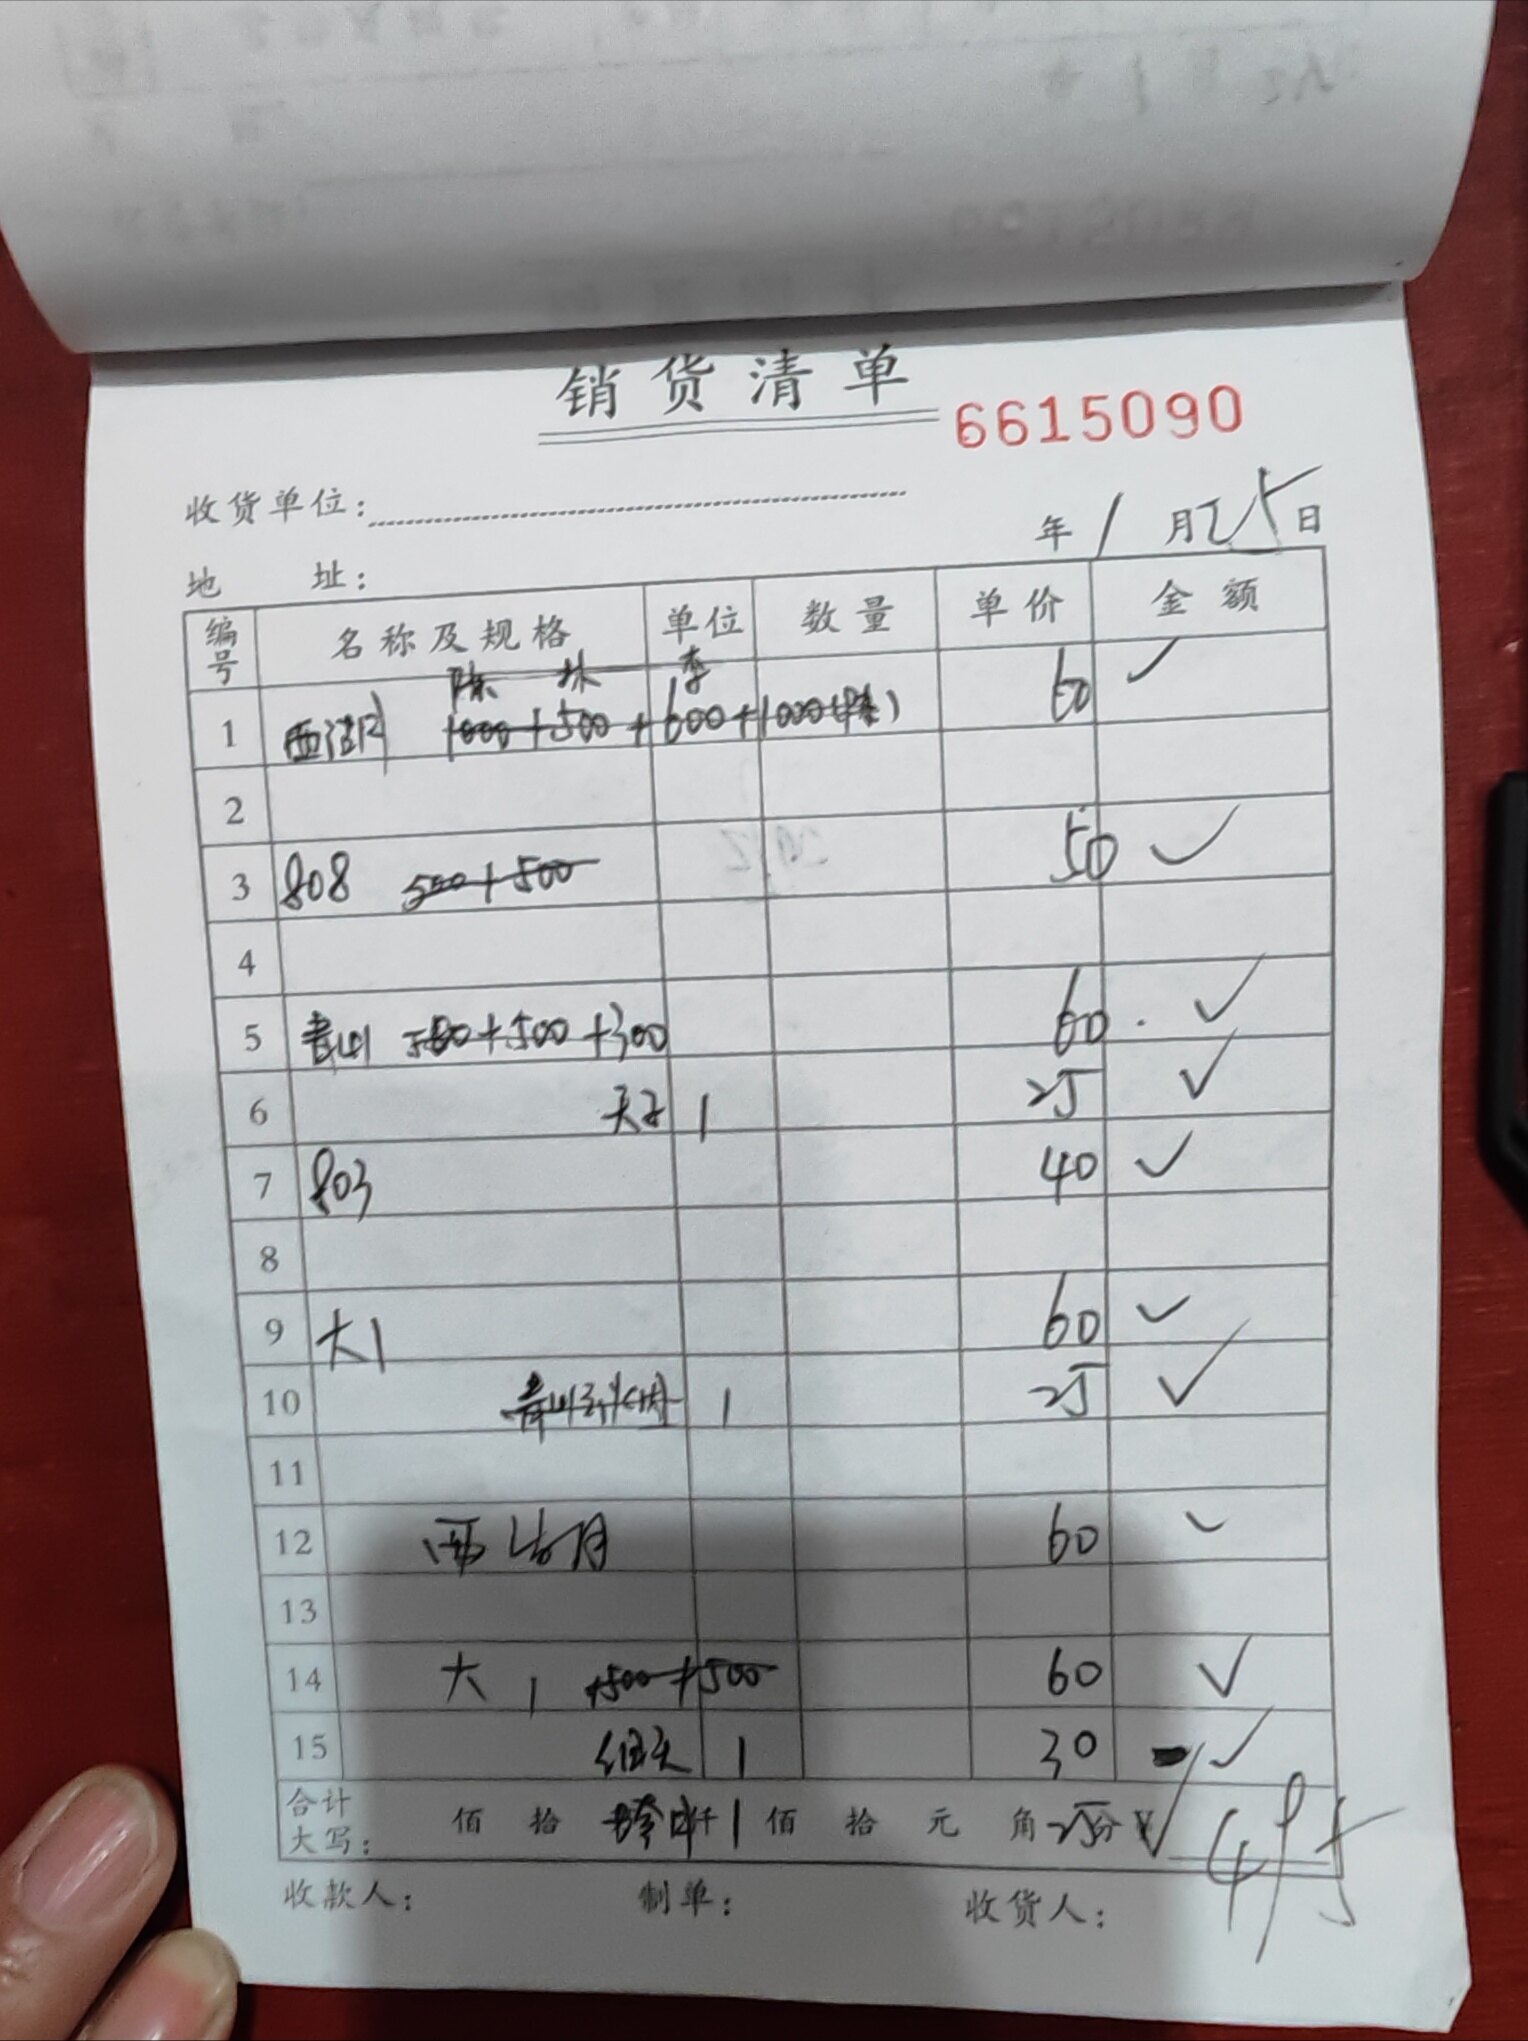 销货清单
6615090
收货单位:
年 1 月 25 日
地 址:
编号 名称及规格 单位 数量 单价 金额
陈 林 李
1 西湖月 1000+500+600+1000(陈) 60 ✓
2
3 808 550+500 50 ✓
4
5 青山 500+500+300 60 ✓
6 天子 1 25 ✓
7 803 40 ✓
8
9 大1 60 ✓
10 青山 1 25 ✓
11
12 西 月 60 ✓
13
14 大 1 1500+500 60 ✓
15 细支 1 30 ✓
合计大写: 佰 拾 仟 1 佰 拾 元 角 25 分 ¥ ✓ 495
收款人: 制单: 收货人: